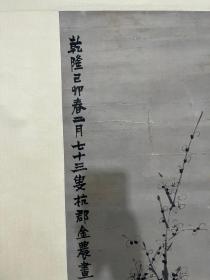 乾隆己卯春二月七十三叟杭郡金農畫